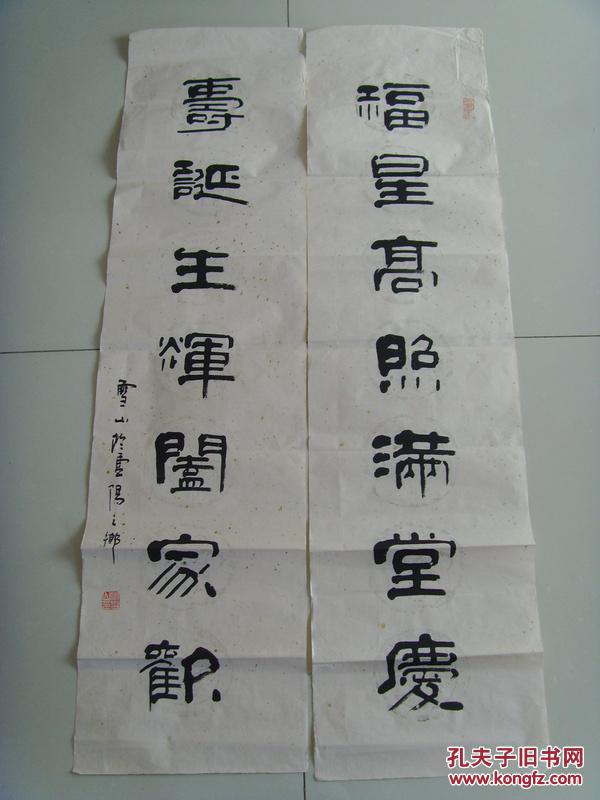 福星高照满堂慶
壽誕生輝闔家歡
雪山於壽陽之鄉
孔夫子旧书网
www.kongfz.com